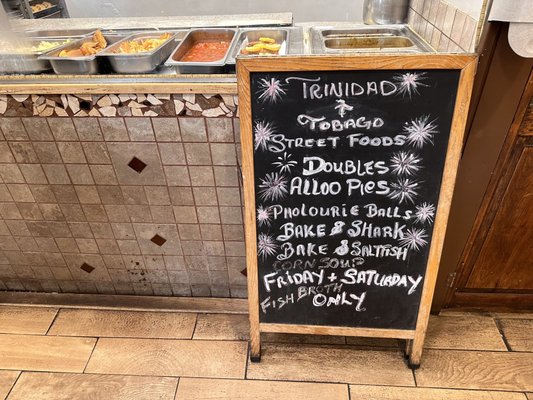 TRINIDAD
&
TOBAGO
STREET FOODS
DOUBLES
ALLOO PIES
PHOLOURIE BALLS
BAKE & SHARK
BAKE & SALTFISH
CORN SOUP
FRIDAY + SATURDAY
FISH BROTH ONLY